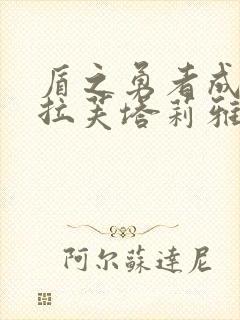 盾之勇者成
拉芙塔莉雅
阿尔蘇達尼